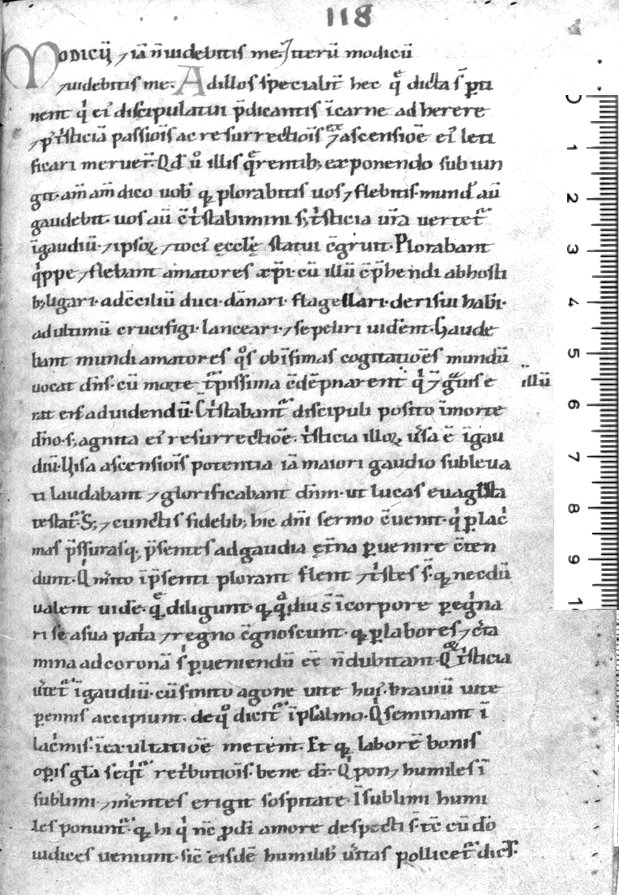 118
Modicū ⁊ iā n̄ videbitis me. Iterū modicū
⁊ videbitis me. Ad illos specialit̄ hec q̄ dicta s̄ ꝑti
nent q̇ ei᷒ discipulatui p̄dicantis ī carne adherere
⁊ ꝑ tⁱsticiā passiōis ac resurrectiōis ei᷒ ⁊ ascensiōe ei᷒ leti
ficari meruer̄. Qd̄ u̇ illis q̄rentib; exponendo subiun
git. am̄ am̄ dico uob̄ qꝫ plorabitis uos ⁊ flebitis. mund᷒ aū
gaudebit. uos aū c̄tⁱstabimini s; tⁱsticia ur̄a uertet᷑
ī gaudiū. ⁊ ipsoꝝ ⁊ toci᷒ ęcclę̄ statui c̄gruit. Plorabant
qⁱppe ⁊ flebant amatores xp̄i. cū illū c̄p̄hendi ab hosti
b; ligari. ad c̄ciliū duci. dānari. flagellari. derisui hab̄i.
ad ultimū crucifigi. lanceari. ⁊ sepeliri uider̄ent. Gaude
bant mundi amatores q̊s ob īfimas cogitatiōes mundū
uocat dn̄s. cū morte t᷑pissima c̄dēpnarent qⁱ ẽ ḡuis e illū
rat eis ad uidendū. C̄tⁱstabant᷑ discipuli posito ī morte
dn̄o. s; agnita ei᷒ resurrectiōe. tⁱsticia illoꝝ u̾sa ē ī gau
diū. Uisa ascensiōis potentia iā maiori gaudio subleua
ti laudabant ⁊ glorificabant dn̄m. ut lucas euaglīsta
testat᷑. S; ⁊ cunctis fidelib; hic dn̄i sermo c̄uenit. qⁱ ꝑ lacⁱ
mas p̄ssurasqꝫ p̄sentes ad gaudia et̄na ꝑuenire c̄ten
dunt. Qⁱ m̄ito ī p̄senti plorant flent ⁊ tⁱstes s̄. qꝫ necdū
ualent uide̾ q̄ diligunt. qꝫ q̊diu s̄ ī corpore ꝑegⁱna
ri se a sua pat̾a ⁊ regno c̄gnoscunt. qꝫ ꝑ labores ⁊ c̾ta
mina ad coronā s̄ ꝑueniendū eē n̄ dubitant. Qꝫ tⁱsticia
u̾tet᷑ ī gaudiū. cū finito agone uite hui᷒. brauiū uite
ꝑennis accipiunt. de q̊ dicit᷑ ī psalmo. Qⁱ seminant ī
lacⁱmis. ī exultatiōe metent. Et qꝫ laborē bonis
oꝑis gl̄a seqⁱt᷑ retⁱbutiōis. bene dr̄. Qⁱ pon̄ ⁊ humiles ī
sublimi. ⁊ m̾entes erigit sospitate. I sublimi humi
les ponunt᷑. qꝫ hi qⁱ nc̄ ꝓ dī amore despecti s̄. tc̄ cū dō
iudices ueniunt. sic̄ eisdē humilib᷒ u̾itas pollicet᷑ dics̄.